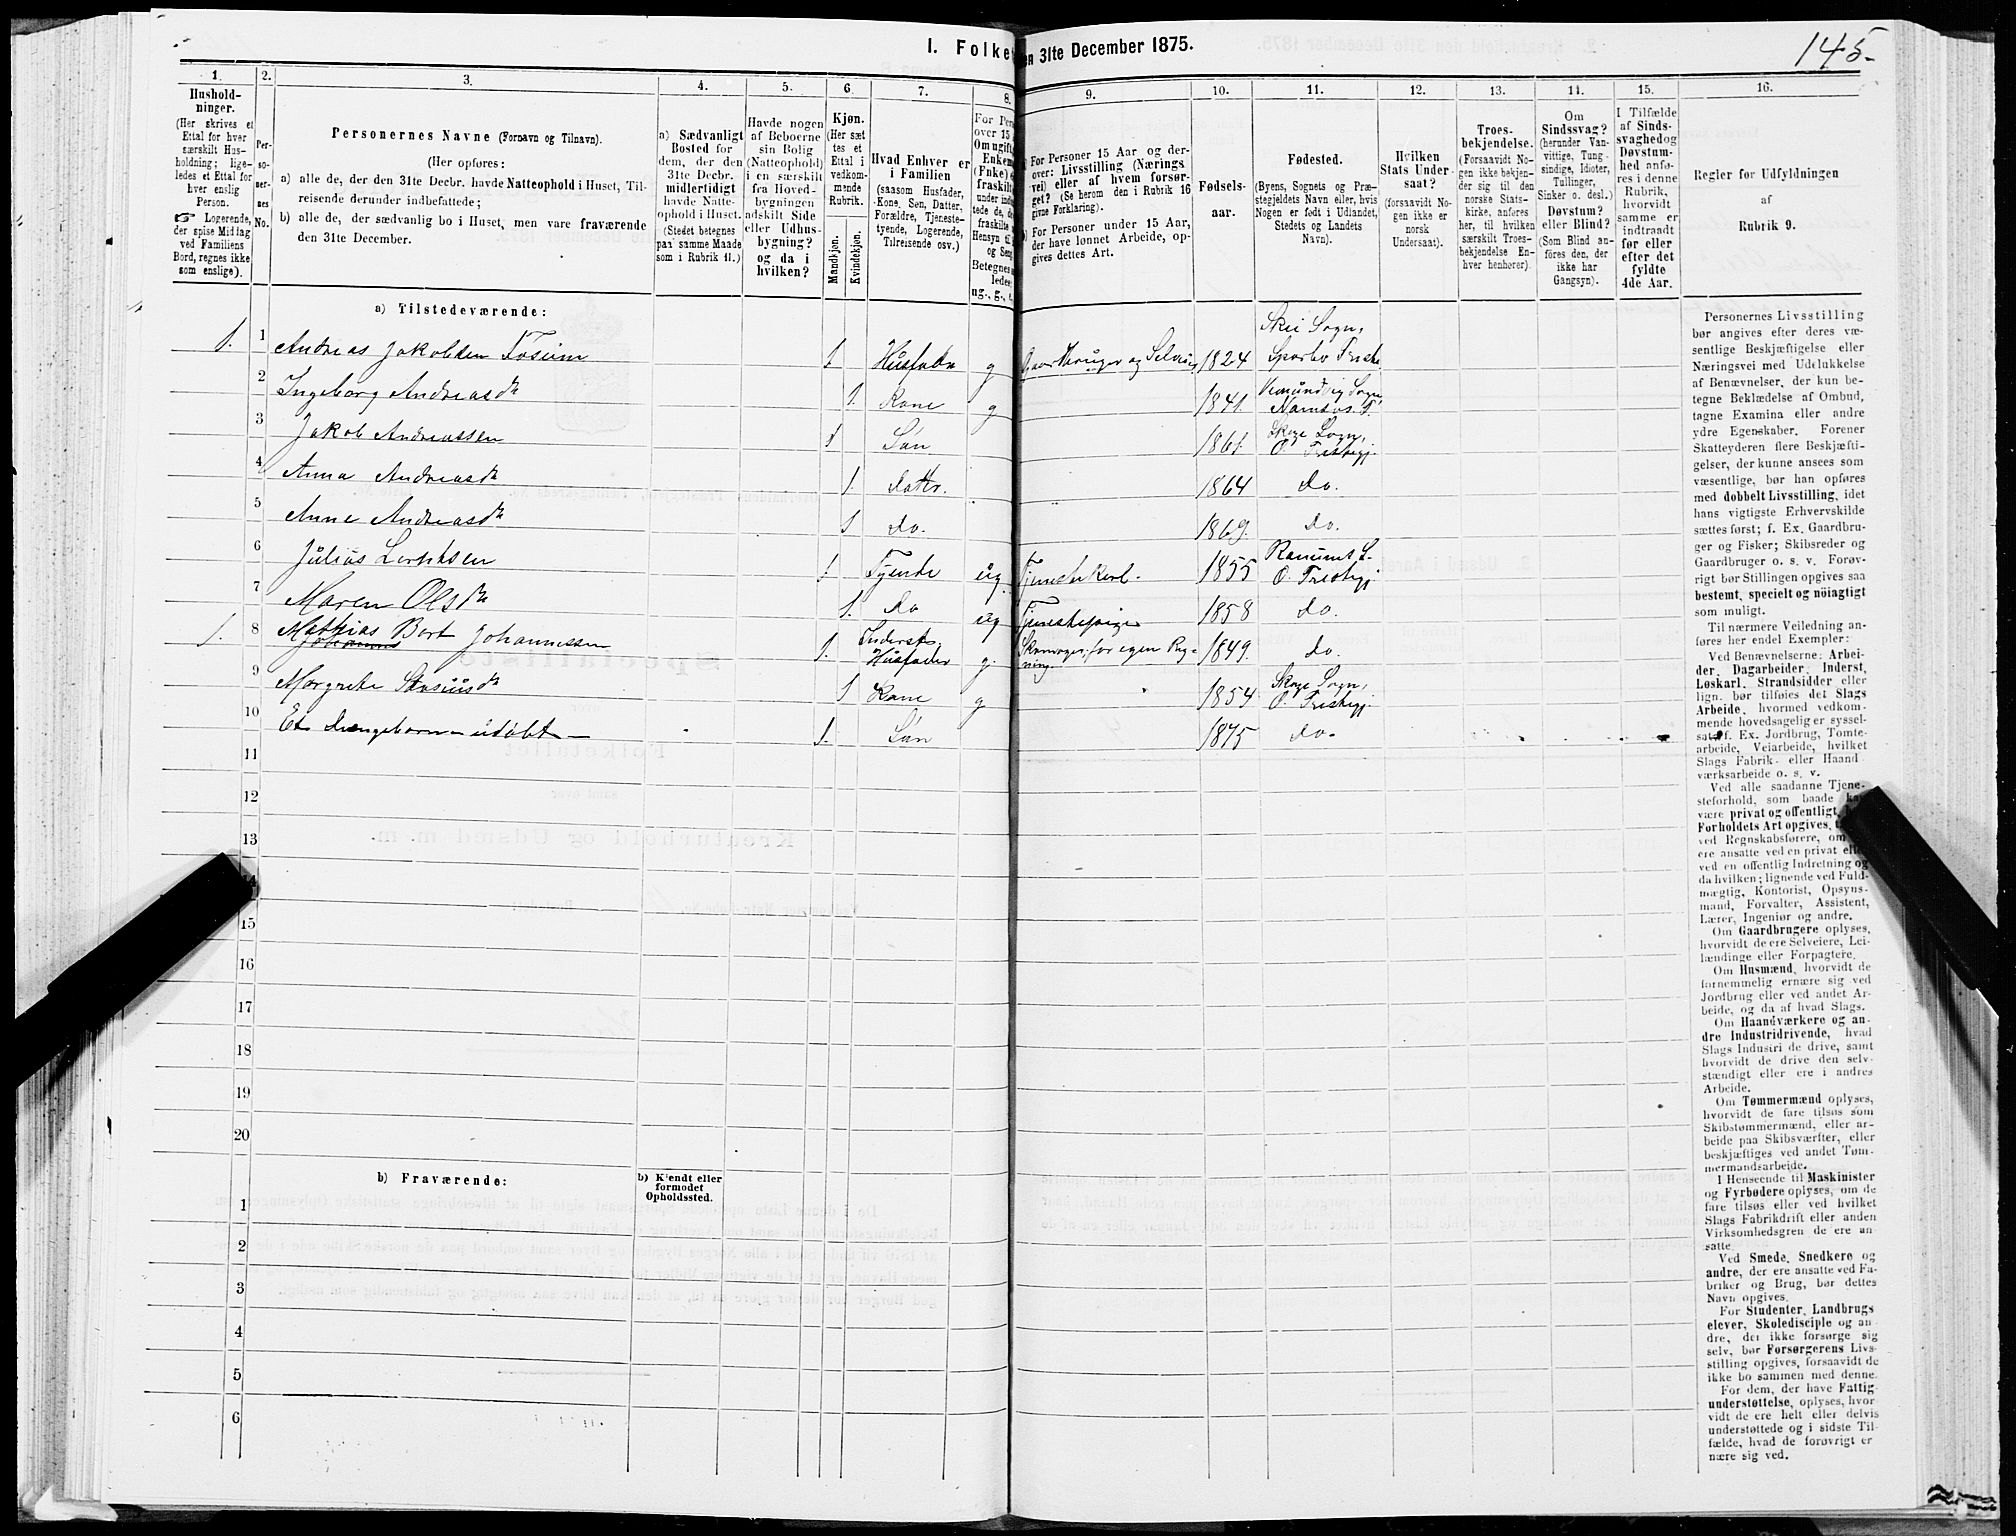 I. Folke
en 31te December 1875.
145.
1.
2.
3.
4.
5.
6.
7.
8.
9.
10.
11.
12.
13.
14.
15.
16.
Hushold-
ninger.
(Her skrives et
Ettal for hver
særskilt Hus-
holdning; lige-
ledes et Ettal for
hver enslig
Person.
☞ Logerende,
der spise Middag
ved Familiens
Bord, regnes ikke
som enslige).
Per-
so-
ner-
nes
No.
Personernes Navne (Fornavn og Tilnavn).
(Her opføres:
a) alle de, der den 31te Decbr. havde Natteophold i Huset, Til-
reisende derunder indbefattede;
b) alle de, der sædvanlig bo i Huset, men vare fraværende
den 31te December.
a) Sædvanligt
Bosted for
dem, der den
31te Decbr.
midlertidigt
havde Natte-
ophold i Huset.
(Stedet betegnes
paa samme Maade
som i Rubrik 11.)
Havde nogen
af Beboerne
sin Bolig
(Natteophold)
i en særskilt
fra Hoved-
bygningen
adskilt Side
eller Udhus-
bygning?
og da i
hvilken?
Kjøn.
(Her sæt
tes et
Ettal i
vedkom-
mende
Rubrik.
Mandkjøn.
Kvindekjøn.
Hvad Enhver er
i Familien
(saasom Husfader,
Kone, Søn, Datter,
Forældre, Tjeneste-
tyende, Logerende,
Tilreisende osv.)
For Pers
over 15
Om ugift
Enkem
(Fnke) e
fraskilt
under indt
tede de, d
fraskilte
Hensyn til
og Seng
Betegnes
ledes
ug., g., e.
For Personer 15 Aar og der-
over: Livsstilling (Nærings
vei) eller af hvem forsør-
get? (Se herom den i Rubrik 16
givne Forklaring).
For Personer under 15 Aar,
der have lønnet Arbeide, op-
gives dettes Art.
Fødsels-
aar.
Fødested.
(Byens, Sognets og Præ-
stegjeldets Navn eller, hvis
Nogen er født i Udlandet,
Stedets og Landets
Navn).
Hvilken
Stats Under-
saat?
(forsaavidt No-
gen ikke er
norsk
Undersaat).
Troes-
bekjendelse.
(Forsaavidt No-
gen ikke bekjen-
der sig til den
norske Stats-
kirke, anføres
her, til hvilken
særskilt Troes-
bekjendelse En-
hver henhører).
Om
Sindssvag?
(herunder Van-
vittige, Tung-
sindige, Idioter,
Tullinger,
Sinker o. desl.)
Døvstum?
eller Blind?
(Som Blind an-
føres den, der
ikke har
Gangsyn).
I Tilfælde
af Sinds-
svaghed og
Døvstum-
hed anfø-
res i denne
Rubrik,
hvorvidt
samme er
indtraadt
før eller
efter det
fyldte
4de Aar.
Regler for Udfyldningen
af
Rubrik 9.
a) Tilstedeværende:
1. 1 Andreas Jakobsen Fosum 1 Husfader g Gaardbruger og Selveier 1824 Skei Sogn, Sparbo
2 Ingeborg Andreasdtr 1. Kone g 1841. Vemundvig Sogn, Namsos P.
3 Jakob Andreassen 1 Søn 1861. Skage Sogn, O. Prestegj.
4 Anna Andreasdtr 1. Datter. 1864 do.
5 Anne Andreasdtr 1 do. 1869. do.
6 Julius 1. Tyende ug. Tjenestekarl. 1855 Ranums S. O. Prestegj.
7 Maren Olsdtr 1. do ug Tjenestepige 1858 do.
1. 8 Mathias Bart Johannessen 1. Inderst, Husfader g. Skomager for egen Reg-
ning 1849. do.
9 Margrete 1 Kone g 1854 Skage Sogn, O. Prestegj.
10 Et Drengebarn – udøbt – 1. Søn 1875 do.
11
12
13
14
15
16
17
18
19
20
b) Fraværende:
b) Kjendt eller
formodet
Opholdssted.
1
2
3
4
5
6
Personernes Livsstilling
bør angives efter deres væ-
sentlige Beskjæftigelse eller
Næringsvei med Udelukkelse
af Benævnelser, der kun be-
tegne Beklædelse af Ombud,
tagne Examina eller andre
ydre Egenskaber. Forener
Skatteyderen flere Beskjæfti-
gelser, der kunne ansees som
væsentlige, bør han opføres
med dobbelt Livsstilling, idet
hans vigtigste Erhvervskilde
sættes først; f. Ex. Gaardbru-
ger og Fisker; Skibsreder og
Gaardbruger o. s. v. Forøv-
rigt bør Stillingen opgives saa
bestemt, specielt og nöiagtigt
som muligt.
Til nærmere Veiledning an-
føres her endel Exempler:
Ved Benævnelserne: Arbei-
der, Dagarbeider, Inderst,
Løskarl, Strandsidder eller
lign. bør tilføies det Slags
Arbeide, hvormed vedkom-
mende hovedsagelig er syssel-
sat; f. Ex. Jordbrug, Tomte-
arbeide, Veiarbeide, hvilket
Slags Fabrik- eller Haand-
værksarbeide o. s. v.
Ved alle saadanne Tjene-
steforhold, som baade kan
være privat og offentligt,
Forholdets Art opgives,
ved Regnskabsførere, om
ere ansatte ved en privat eller
ved en offentlig Indretning og
da hvilken; lignende ved Fuld-
mægtig, Kontorist, Opsyns-
mand, Forvalter, Assistent,
Lærer, Ingeniør og andre.
Om Gaardbrugere oplyses,
hvorvidt de ere Selveiere, Lei-
lændinge eller Forpagtere.
Om Husmænd, hvorvidt de
fornemmelig ernære sig ved
Jordbrug eller ved andet Ar-
beide, og da af hvad Slags.
Om Haandværkere og an-
dre Industridrivende, hvad
Slags Industri de drive, samt
hvorvidt de drive den selv-
stændigt eller ere i andres
Arbeide.
Om Tømmermænd oplyses,
hvorvidt de fare tilsøs som
Skibstømmermænd, eller ar-
beide paa Skibsværfter, eller
beskjæftiges ved andet Tøm-
mermandsarbeide.
I Henseende til Maskinister
og Fyrbødere oplyses, om de
fare tilsøs eller ved hvilket
Slags Fabrikdrift eller anden
Virksomhedsgren de ere an-
satte.
Ved Smede, Snedkere og
andre, der ere ansatte ved Fa-
briker og Brug, bør dettes
Navn opgives.
For Studenter, Landbrugs
elever, Skoledisciple og an-
dre, der ikke forsørge sig
selv, bør Forsørgerens Livs-
stilling opgives, forsaavidt de
ikke bo sammen med denne.
For dem, der have Fattig-
understøttelse, oplyses, hvor-
vidt de ere helt eller delvis
understøttede og i sidste Til-
fælde, hvad de forøvrigt er
nære sig ved.